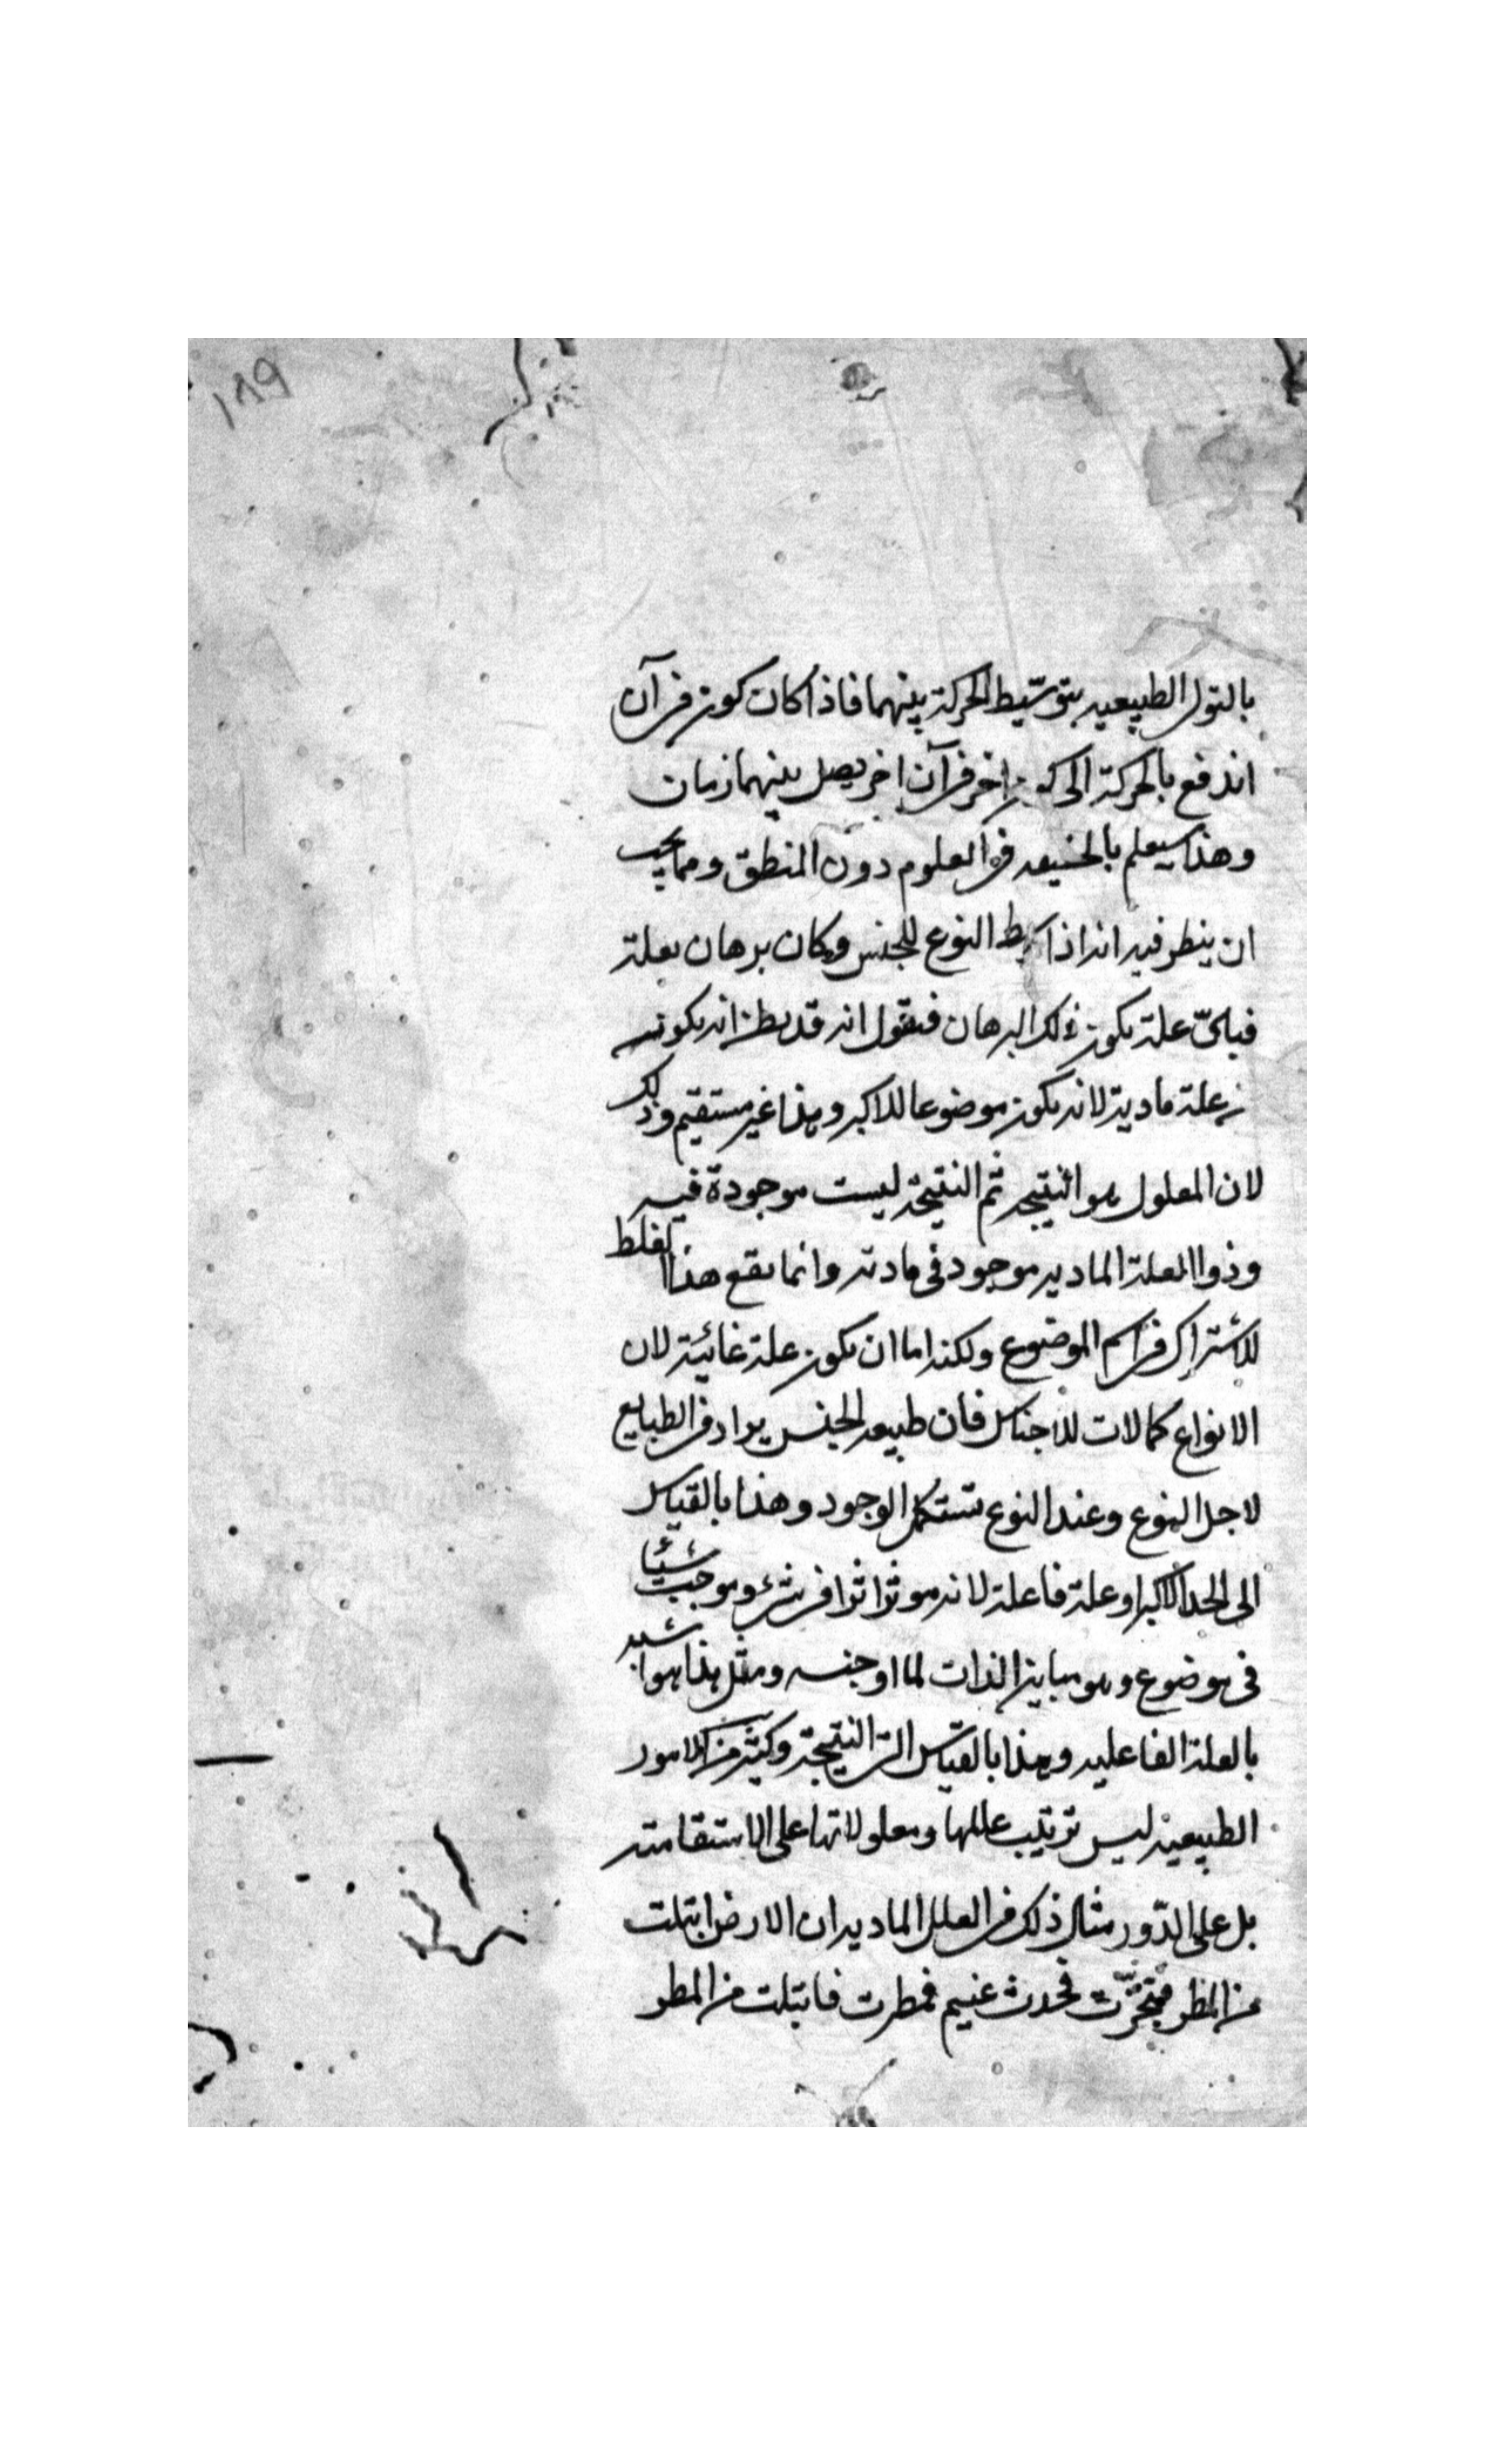 ١٨٩
بالتولى الطبيعيه بتوسّيط الحركة بينهما فاذا كان كون فى آن
اندفع بالحركة الى كون اخر فى آن اخر يصل بينهما زمان
وهذا سيعلم بالحقيقه فى العلوم دون المنطق ومما يجب
ان ينظر فيه انه اذا وسط النوع للجنس وكان برهان بعلة
فباىّ علة يكون ذلك البرهان فنقول انه قد يظن انه يكون
علة مادية لانه يكون موضوعا للاكبر وهذا غير مستقيم وذلك
لان المعلول هو النتيجه ثم النتيجة ليست موجودة فيه
وذوا العلة الماديه موجود فى مادته وانما يقع هذا الغلط
للاشتراك فى اسم الموضوع ولكنه اما ان يكون علة غائية لان
الانواع كمالات للاجناس فان طبيعه الجنس يراد فى الطبايع
لاجل النوع وعند النوع تستكمل الوجود وهذا بالقياس
الى الحد الاكبر او علة فاعلة لانه موثر اثرا فى شىء وموجب شيئا
فى موضوع وهو مباين الذات لما اوجبه ومثل هذا هو اشبه
بالعلة الفاعليه وهذا بالقياس الى النتيجة وكثير من الامور
الطبيعية ليس ترتيب عللها ومعلولاتها على الاستقامة
بل على الدّور مثال ذلك فى العلل الماديه ان الارض ابتلت
من المطر فتبخّرت فحدث غيم فمطرت فابتلت من المطر